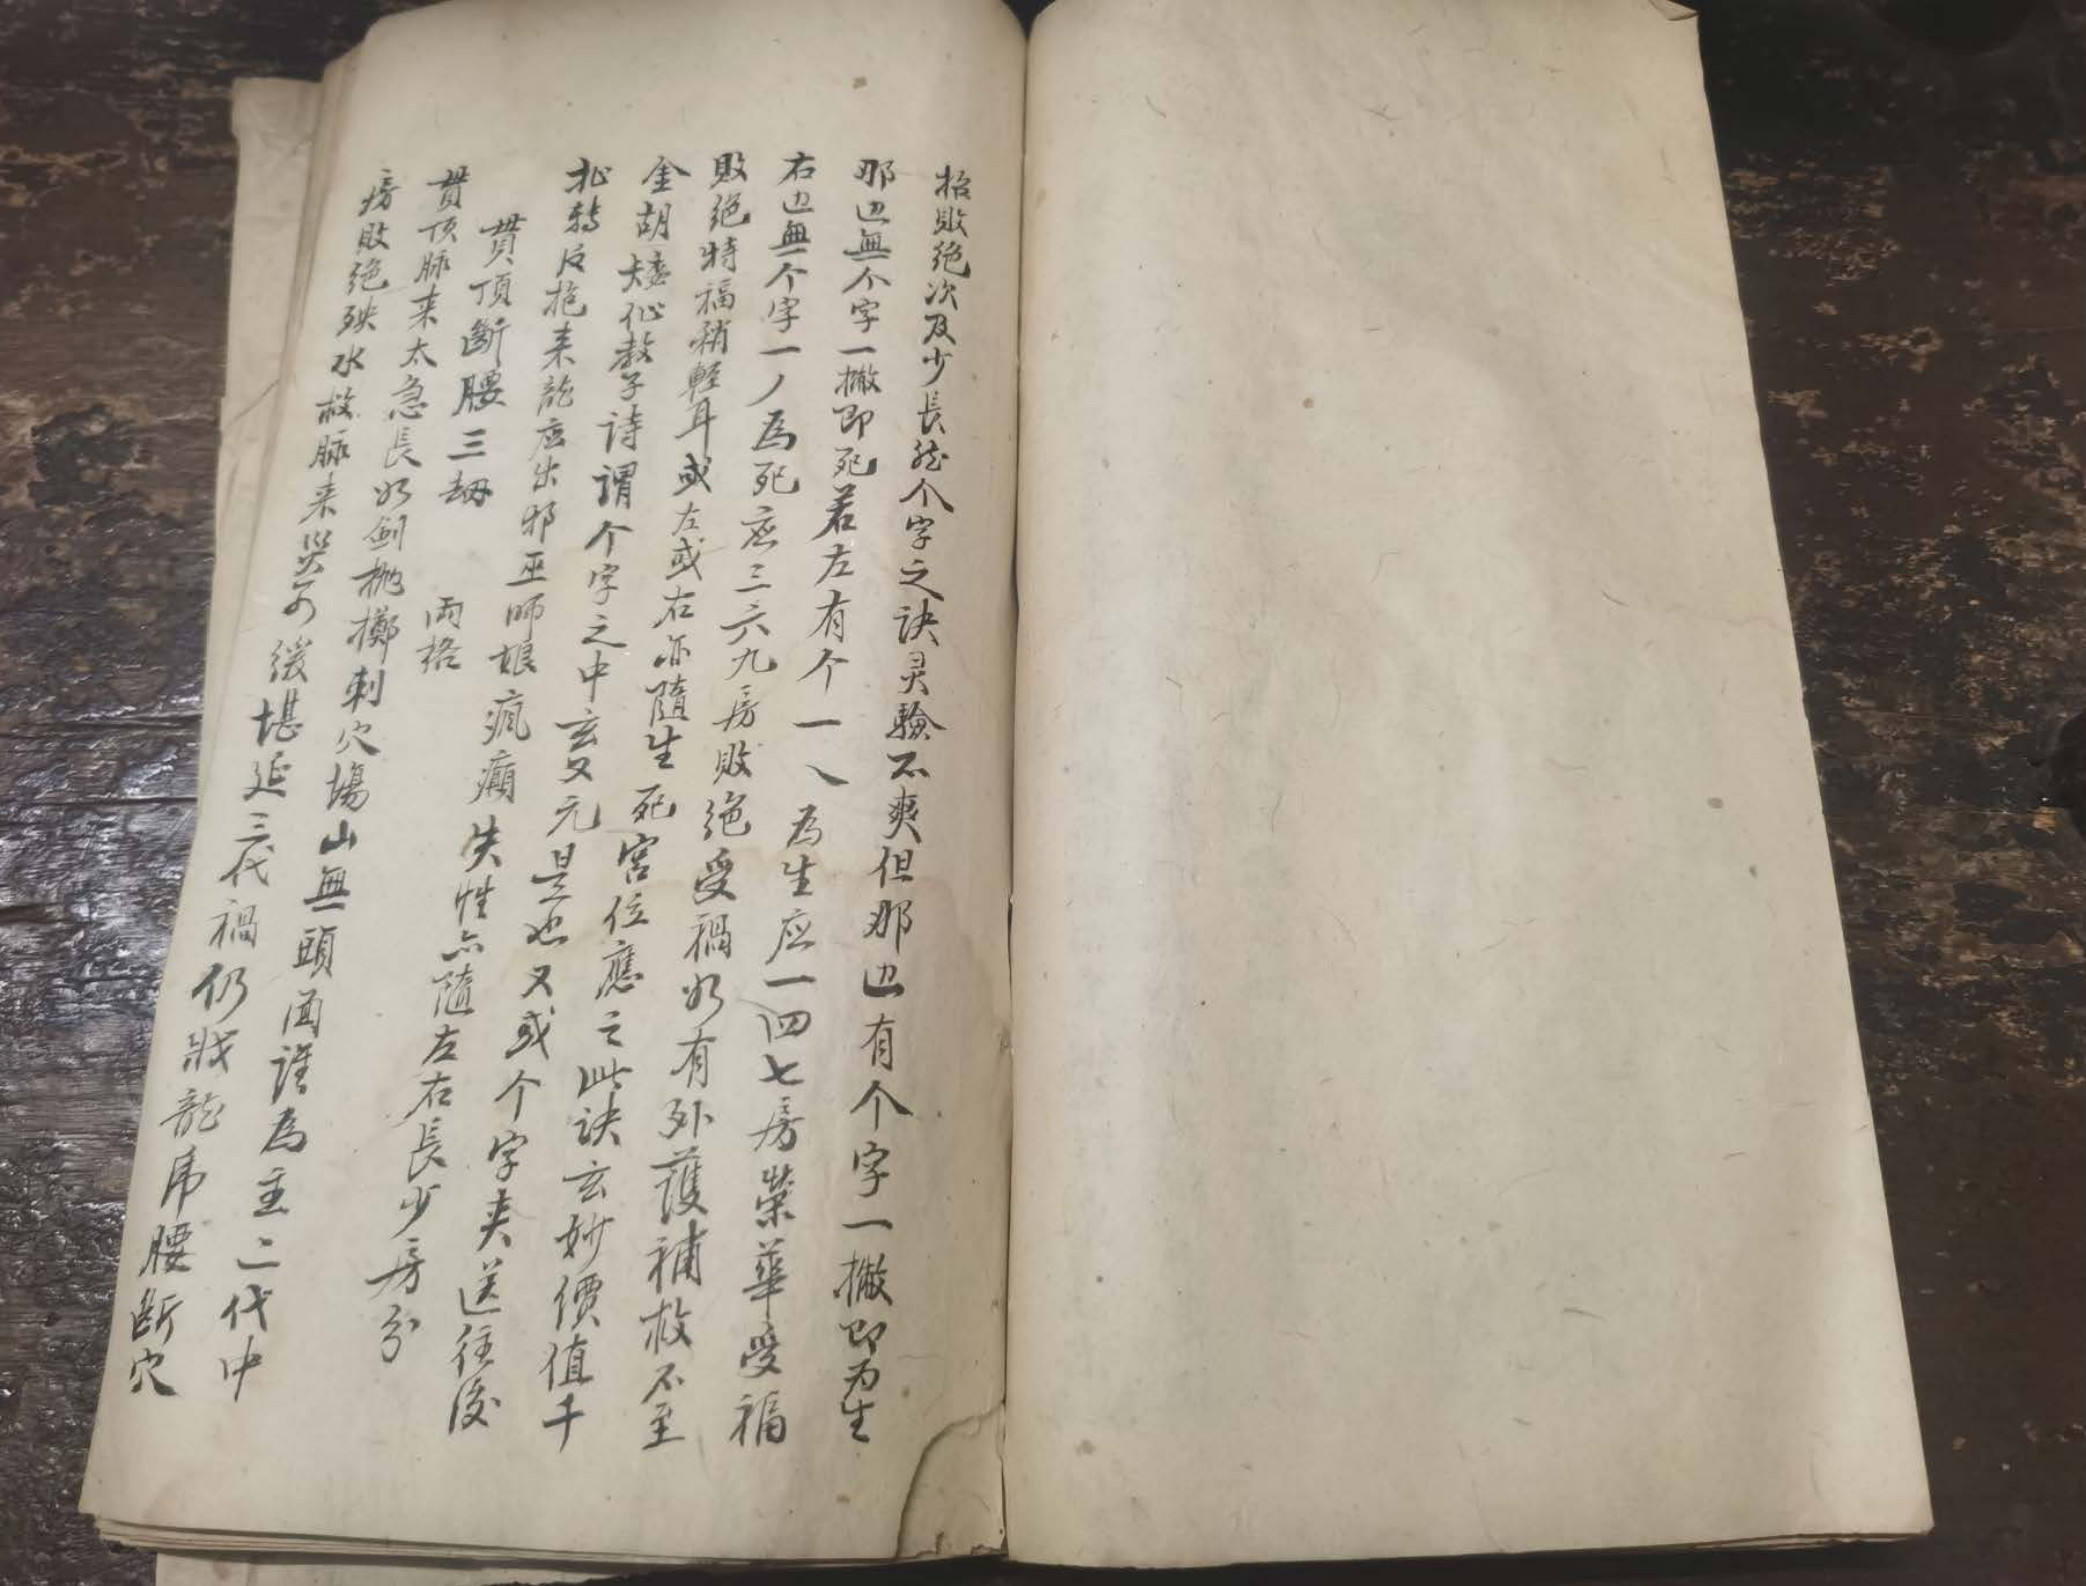 招敗绝次及少長然个字之诀灵驗不爽但那边有个字一撇即为生
那边無个字一撇即死若左有个一乀為生应一四七房榮華受福
右边無个字一丿為死应三六九房敗绝受禍如有外護補救不至
敗绝特福稍輕耳或左或右亦隨生死宫位應之此诀玄妙價值千
金胡矮仙教子诗謂个字之中玄又元是也又或个字夹送往後
扯转反抱来龍应出邪巫师娘疯癲失性亦隨左右長少房分
貫頂斷腰三劫 両格
貫顶脉来太急長如劍抛擲刺穴塲山無頭面誰為主二代中
房敗绝殃水救脉来災可缓堪延三代禍仍戕龍虎腰断穴